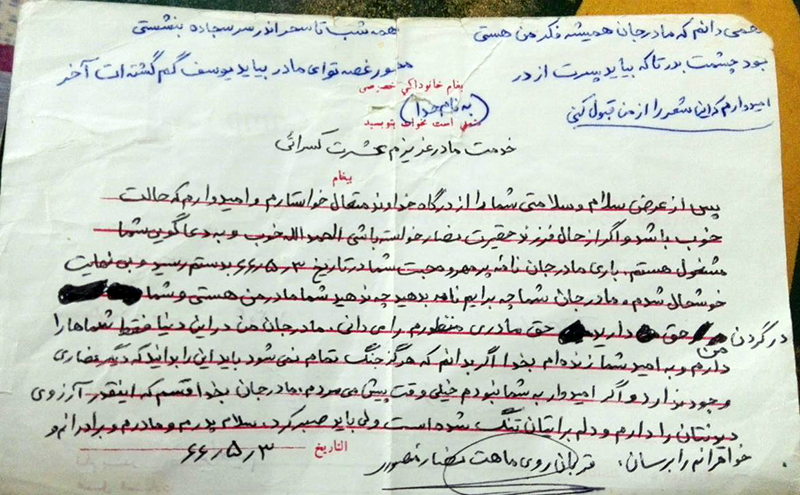 می دانم که مادر جان همیشه فکر من هستی همه شب تا سحر اندر سر سجاده بنشستی
بود چشمت بدر تا که بیاید پسرت از در مخور غصه تو ای مادر بیاید یوسف گم گشته ات آخر
امیدوارم که این شعر را از من قبول کنی
پیغام خانوداگی خصوصی
(به نام خدا)
متمنی است بخوانا بنویسید
خدمت مادر عزیزم عشرت کسرائی
پیغام
پس از عرض سلام و سلامتی شما را از درگاه خداوند متعال خواستارم و امیدوارم که حالت
خوب باشد و اگر از حال فرزند حقیرت نضار خواسته باشی الحمدالله خوب و به دعا گویی شما
مشغول هستم. باری مادر جان نامه پر مهر و محبت شما در تاریخ ۶۶٫۵٫۳ بدستم رسید و بی نهایت
خوشحال شدم و مادر جان شما چه برایم نامه بدهید چه ندهید شما مادر من هستی و شما
در گردن من حق دارید حق مادری منظورم را می دانی. مادر جان من در این دنیا فقط شماها را
دارم و به امید شما زنده ام بخدا اگر بدانم که هرگز جنگ تمام نمی شود باید این را بدانید که دیگر نضاری
وجود ندارد و اگر امیدوار به شما نبودم خیلی وقت پیش می مردم. مادر جان بخدا قسم که اینقدر آرزوی
دیدنتان را دارم و دلم برایتان تنگ شده است ولی باید صبر کرد. سلام پدرم و مادرم و برادرانم و
خواهرانم را برسان. قربان روی ماهت نضار منصوری
التاریخ ۶۶٫۵٫۳